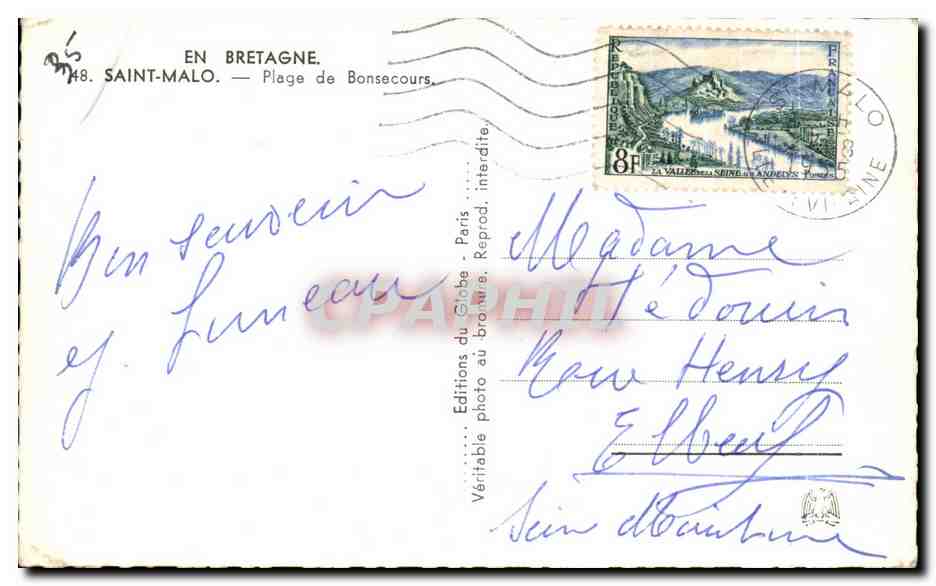 EN BRETAGNE.
48. SAINT-MALO. — Plage de Bonsecours.
35
Bon souvenir
Luneau
Editions du Globe - Paris
Véritable photo au bromure. Reprod. interdite.
CPAPHIL
REPUBLIQUE
FRANÇAISE
8F
LA VALLEE DE LA SEINE AUX ANDELYS POSTES
MALO
VILAINE
Madame
Hédouin
Roue Henry
Elbeuf
Sein Maritime